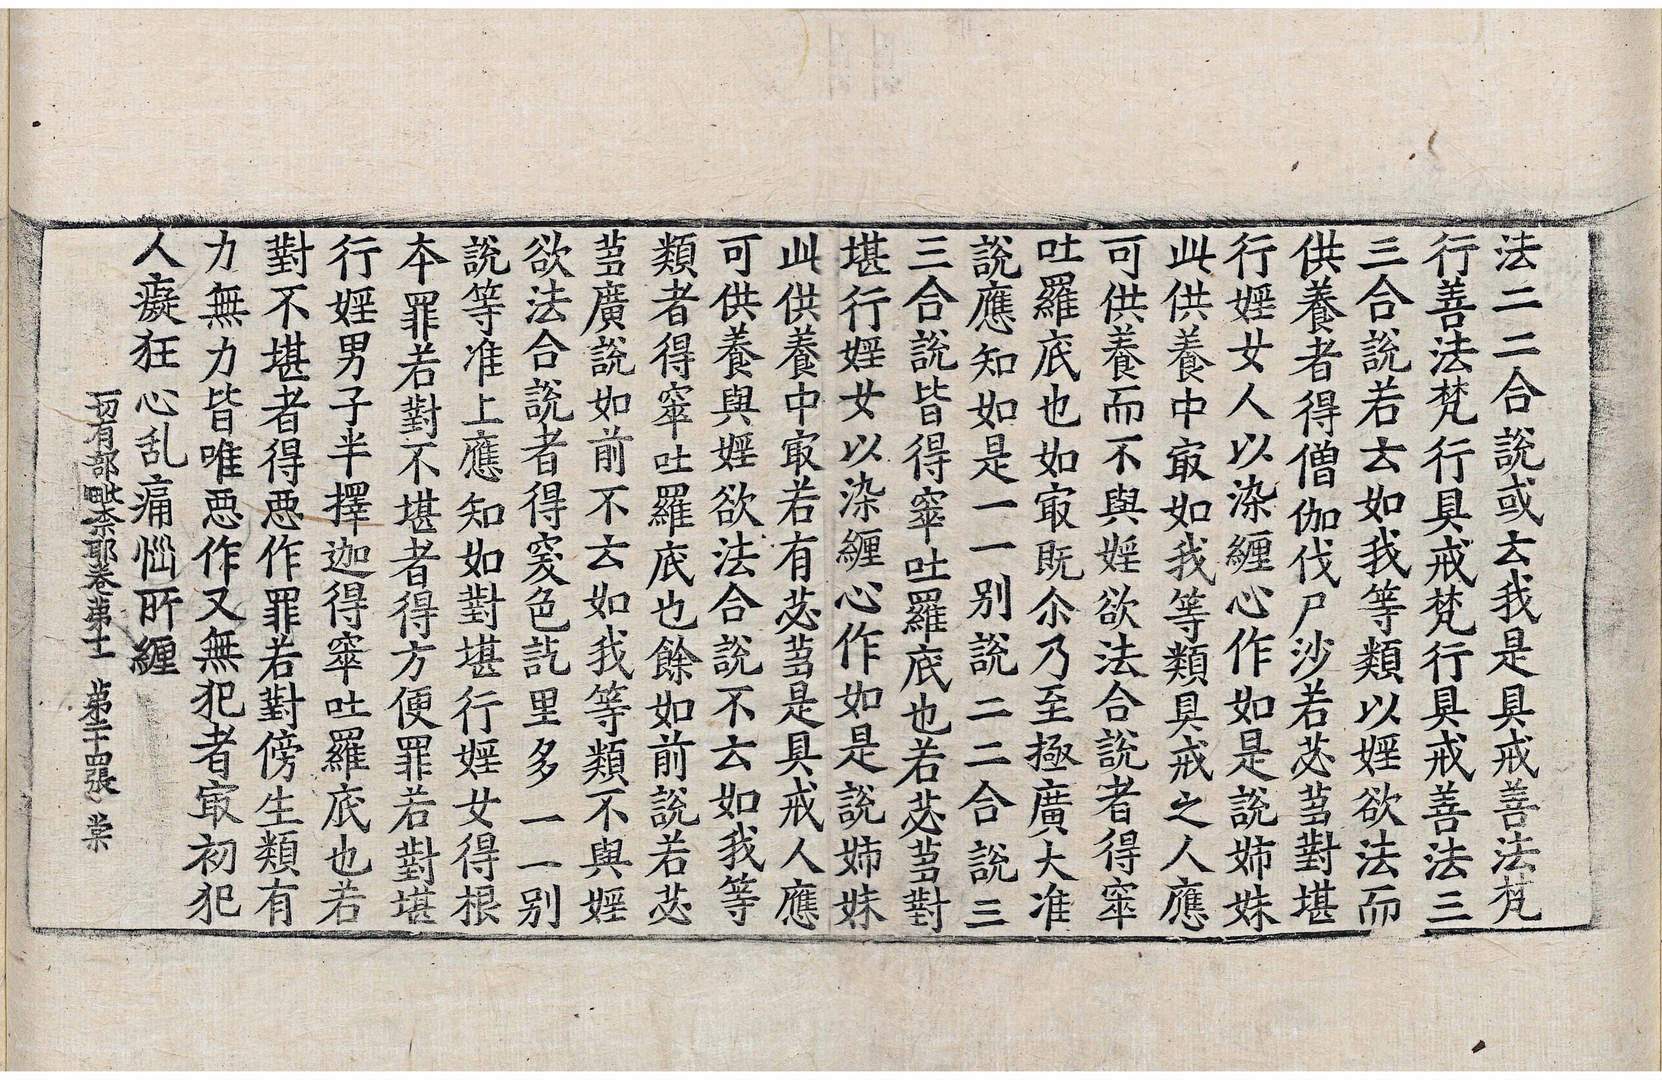 法二二合說或云我是具戒善法梵
行善法梵行具戒梵行具戒善法三
三合說若云如我等類以婬欲法而
供養者得僧伽伐尸沙若苾蒭對堪
行婬女人以染纏心作如是說姊妹
此供養中㝡如我等類具戒之人應
可供養而不與婬欲法合說者得窣
吐羅底也如㝡既尒乃至極廣大准
說應知如是一一別說二二合說三
三合說皆得窣吐羅底也若苾蒭對
堪行婬女以染纏心作如是說姊妹
此供養中㝡若有苾蒭是具戒人應
可供養與婬欲法合說不云如我等
類者得窣吐羅底也餘如前說若苾
蒭廣說如前不云如我等類不與婬
欲法合說者得突色訖里多一一別
說等准上應知如對堪行婬女得根
本罪若對不堪者得方便罪若對堪
行婬男子半擇迦得窣吐羅底也若
對不堪者得惡作罪若對傍生類有
力無力皆唯惡作又無犯者㝡初犯
人癡狂心乱痛惱所纏
一切有部毗奈耶卷第十一 第二十四張 棠